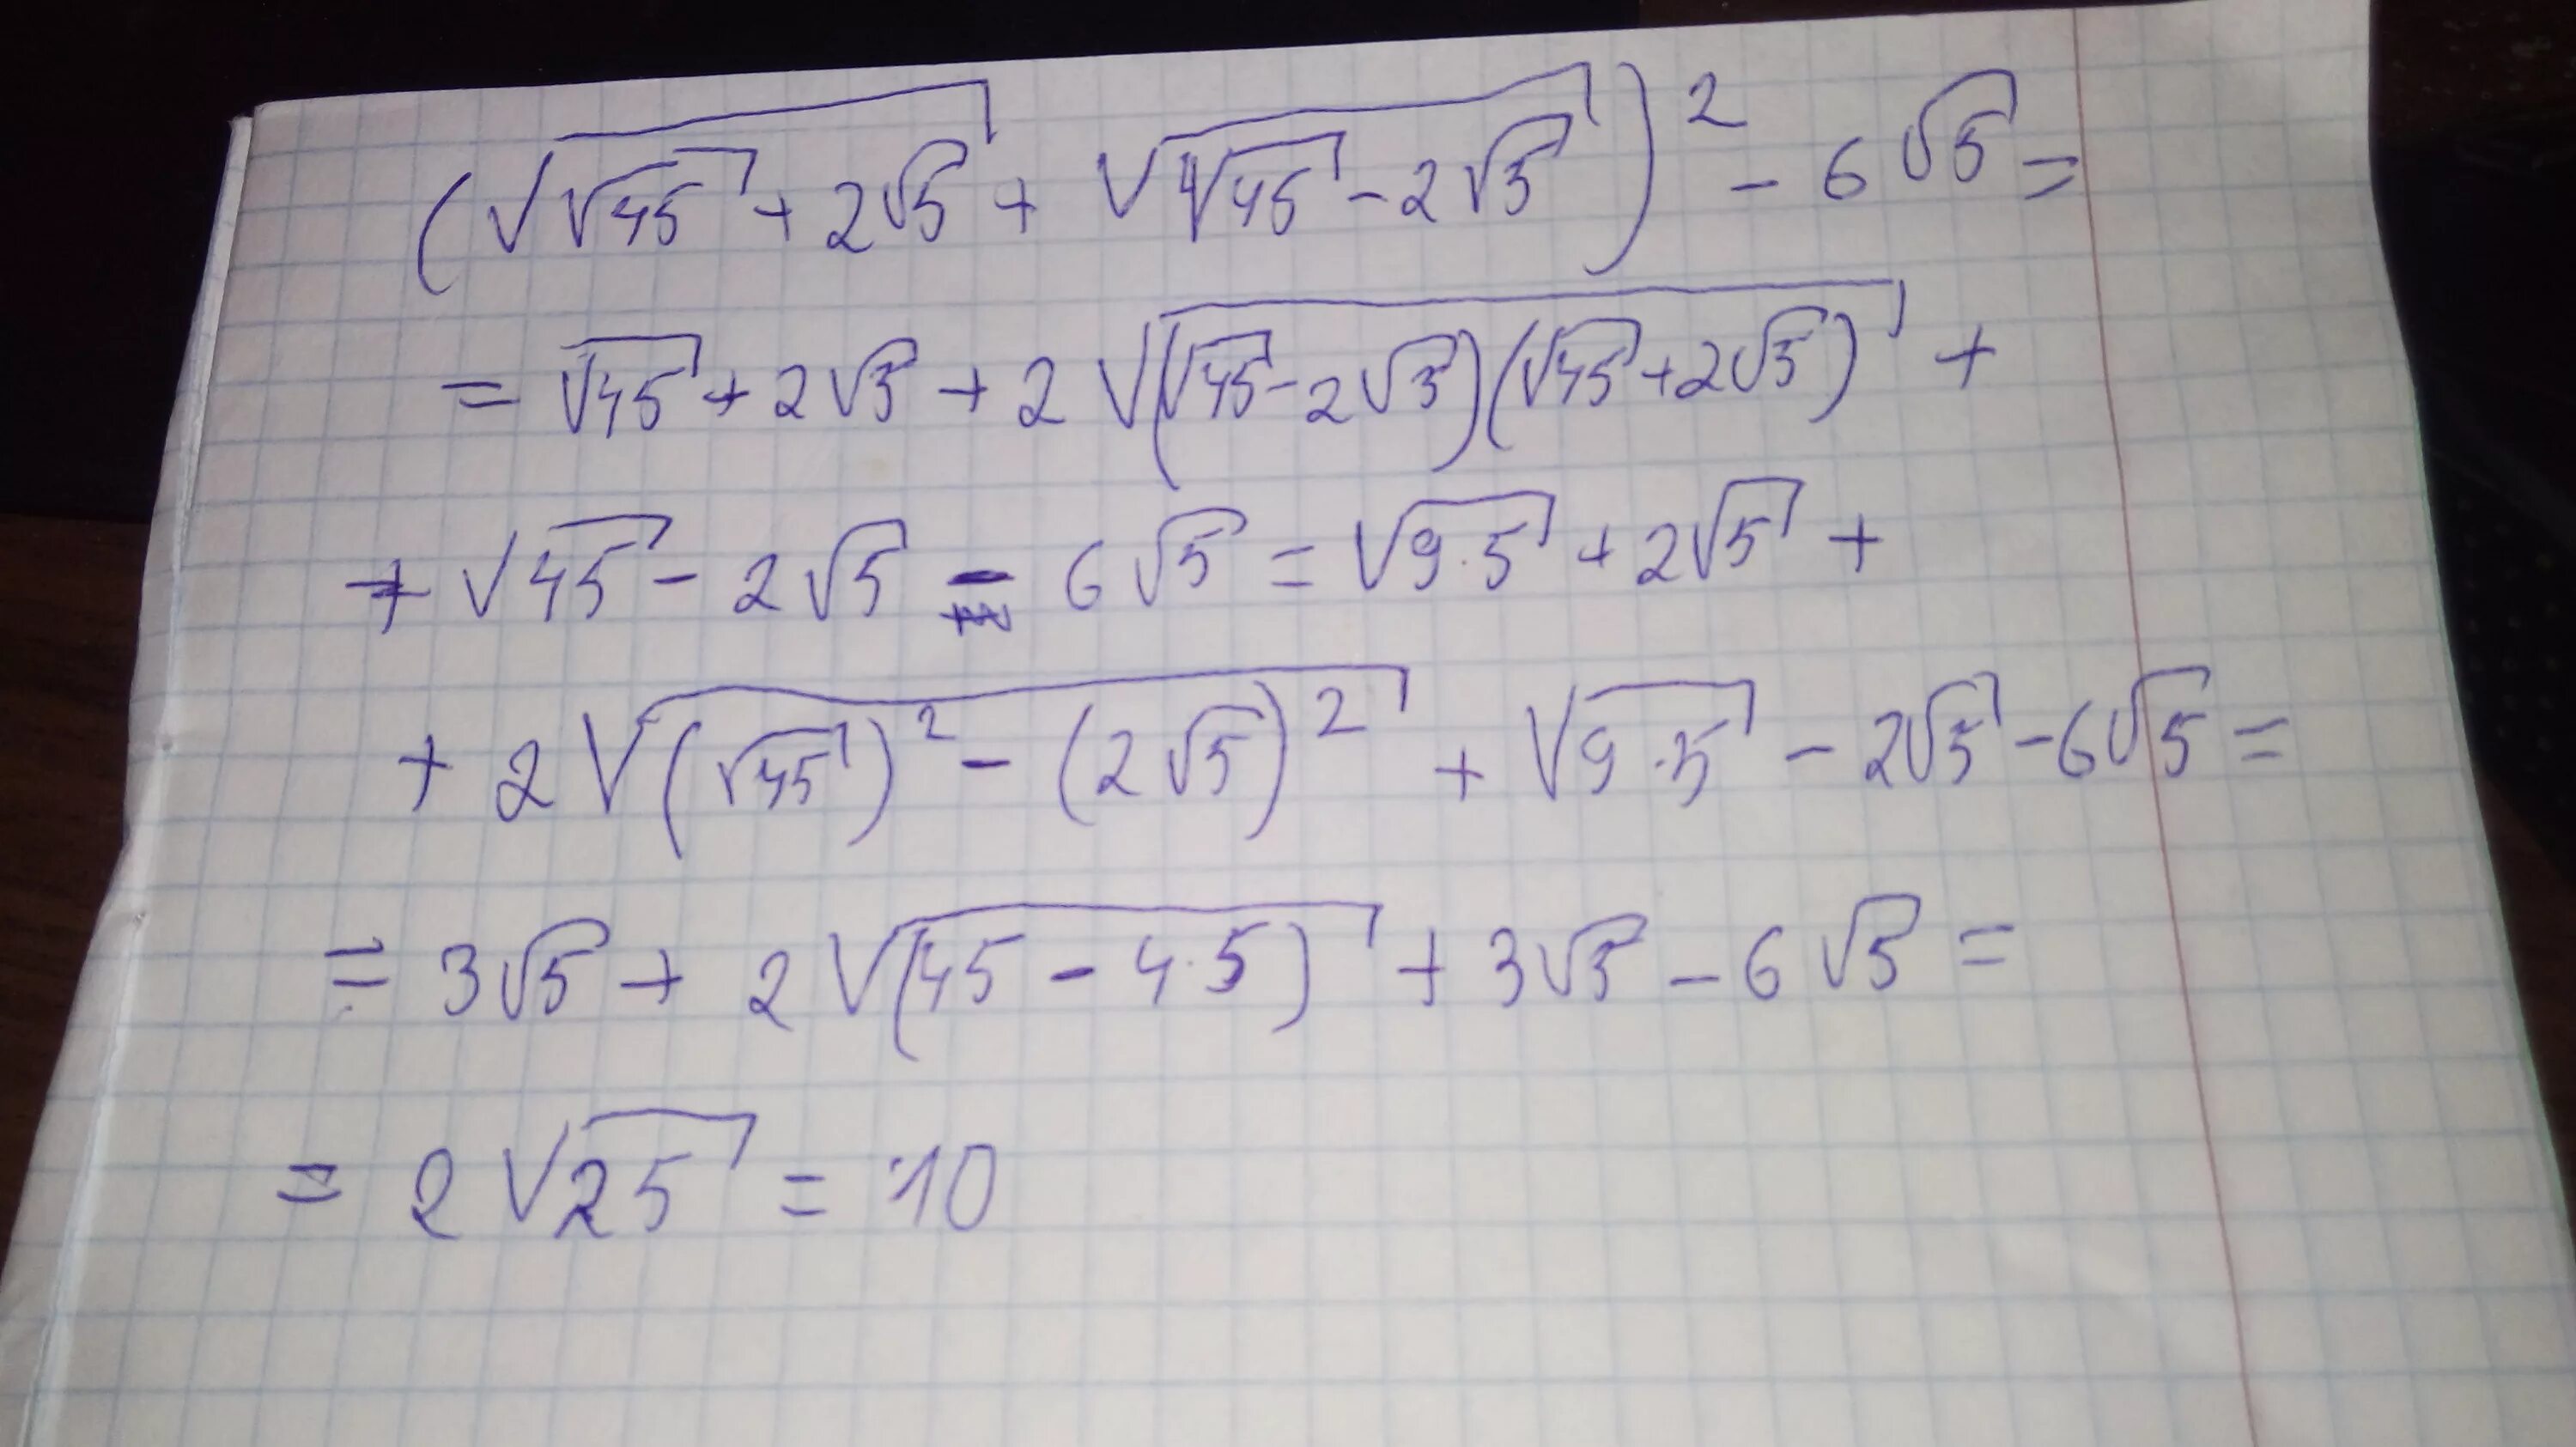 (√(√45 + 2√5) + √(√45 - 2√5))² - 6√5 =
= √45 + 2√5 + 2√((√45 - 2√5)(√45 + 2√5)) +
+ √45 - 2√5 - 6√5 = √(9·5) + 2√5 +
+ 2√((√45)² - (2√5)²) + √(9·5) - 2√5 - 6√5 =
= 3√5 + 2√(45 - 4·5) + 3√5 - 6√5 =
= 2√25 = 10